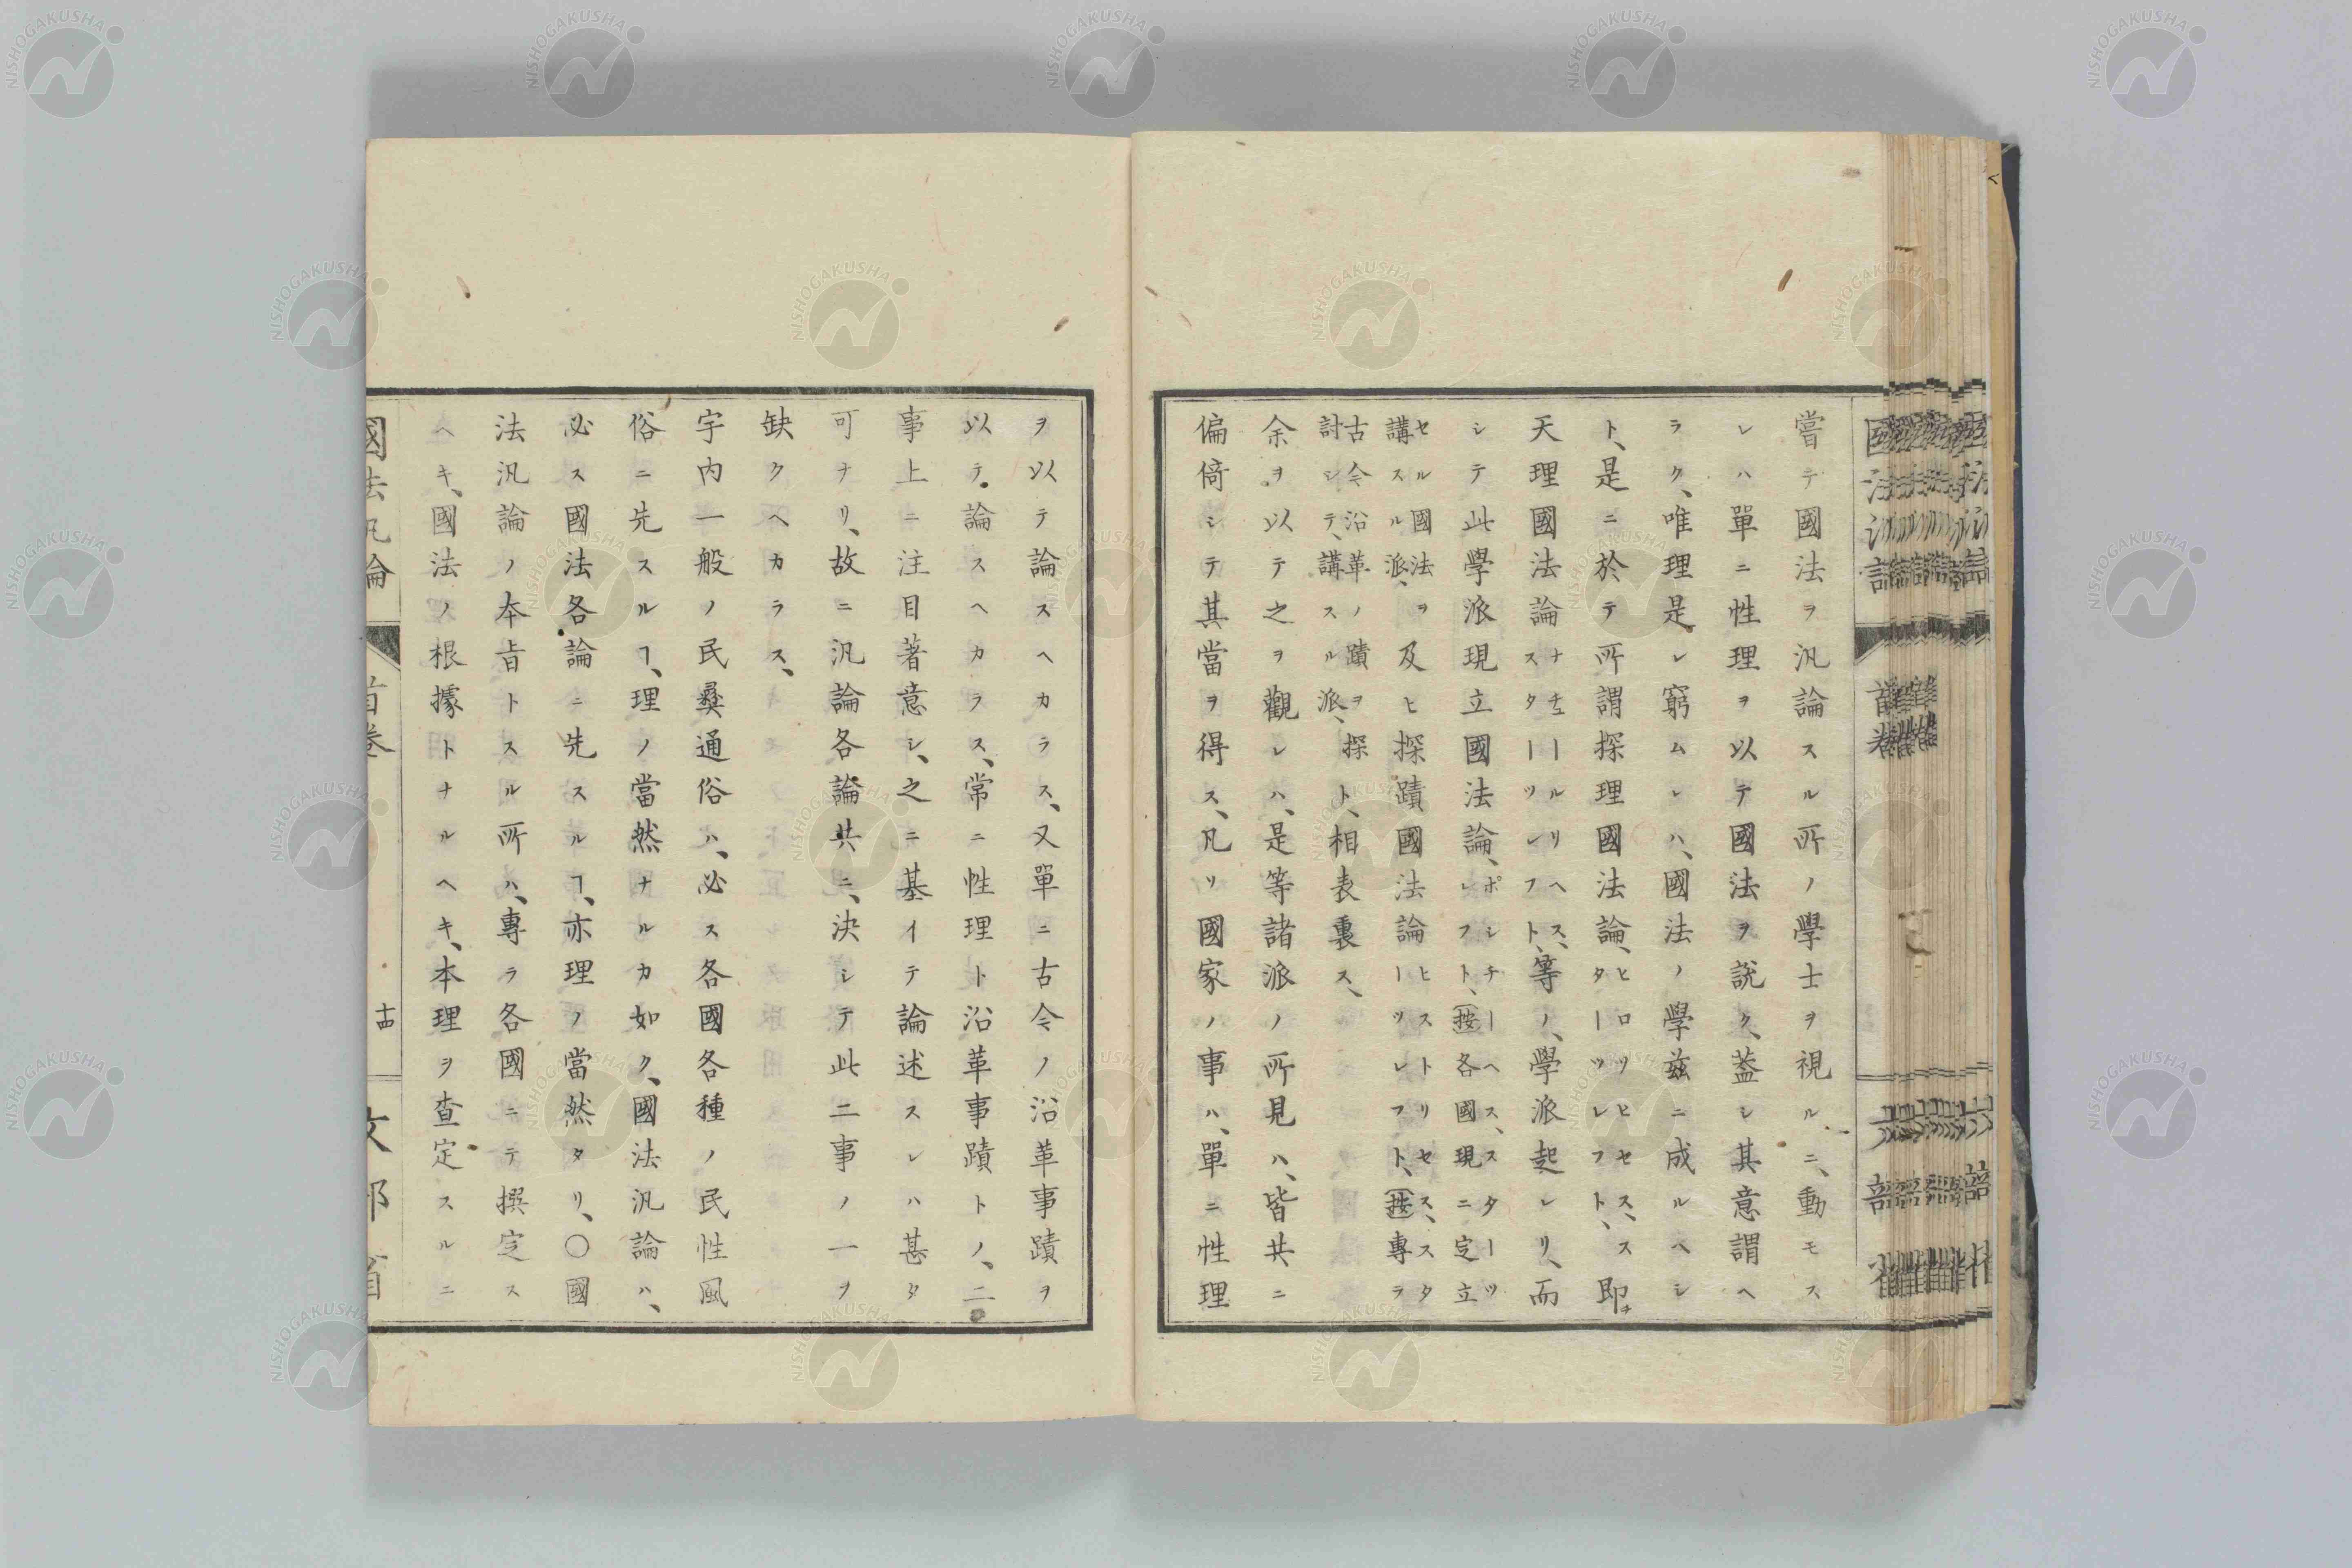 嘗テ國法ヲ汎論スル所ノ學士ヲ視ルニ、動モス
レハ單ニ性理ヲ以テ國法ヲ說ク、蓋シ其意謂ヘ
ラク、唯理是レ窮ムレハ、國法ノ學茲ニ成ルヘシ
ト、是ニ於テ所謂探理國法論、ヒロソヒセス、スターツレフト、即チ
天理國法論ナチュールリヘス、スターツレフト、等ノ、學派起レリ、而
シテ此學派現立國法論、ポシチーヘス、スターツレフト、(按各國現ニ定立
セル國法ヲ講スル派、及ヒ探蹟國法論ヒストリセス、スターツレフト、(按專ラ
古今沿革ノ蹟ヲ探討シテ、講スル派、ト、相表裏ス、
余ヲ以テ之ヲ觀レハ、是等諸派ノ所見ハ、皆共ニ
偏倚シテ其當ヲ得ス、凡ソ國家ノ事ハ、單ニ性理
ヲ以テ論スヘカラス、又單ニ古今ノ沿革事蹟ヲ
以テ論スヘカラス、常ニ性理ト沿革事蹟トノ、二
事上ニ注目著意シ、之ニ基イテ論述スレハ甚タ
可ナリ、故ニ汎論各論共ニ、決シテ此二事ノ一ヲ
缺クヘカラス、
宇內一般ノ民彛通俗ハ、必ス各國各種ノ民性風
俗ニ先スルヿ、理ノ當然ナルカ如ク、國法汎論ハ、
必ス國法各論ニ先スルヿ、亦理ノ當然タリ、〇國
法汎論ノ本旨トスル所ハ、專ラ各國ニテ撰定ス
ヘキ、國法ノ根據トナルヘキ、本理ヲ查定スルニ
國法汎論 首卷 十四 文部省